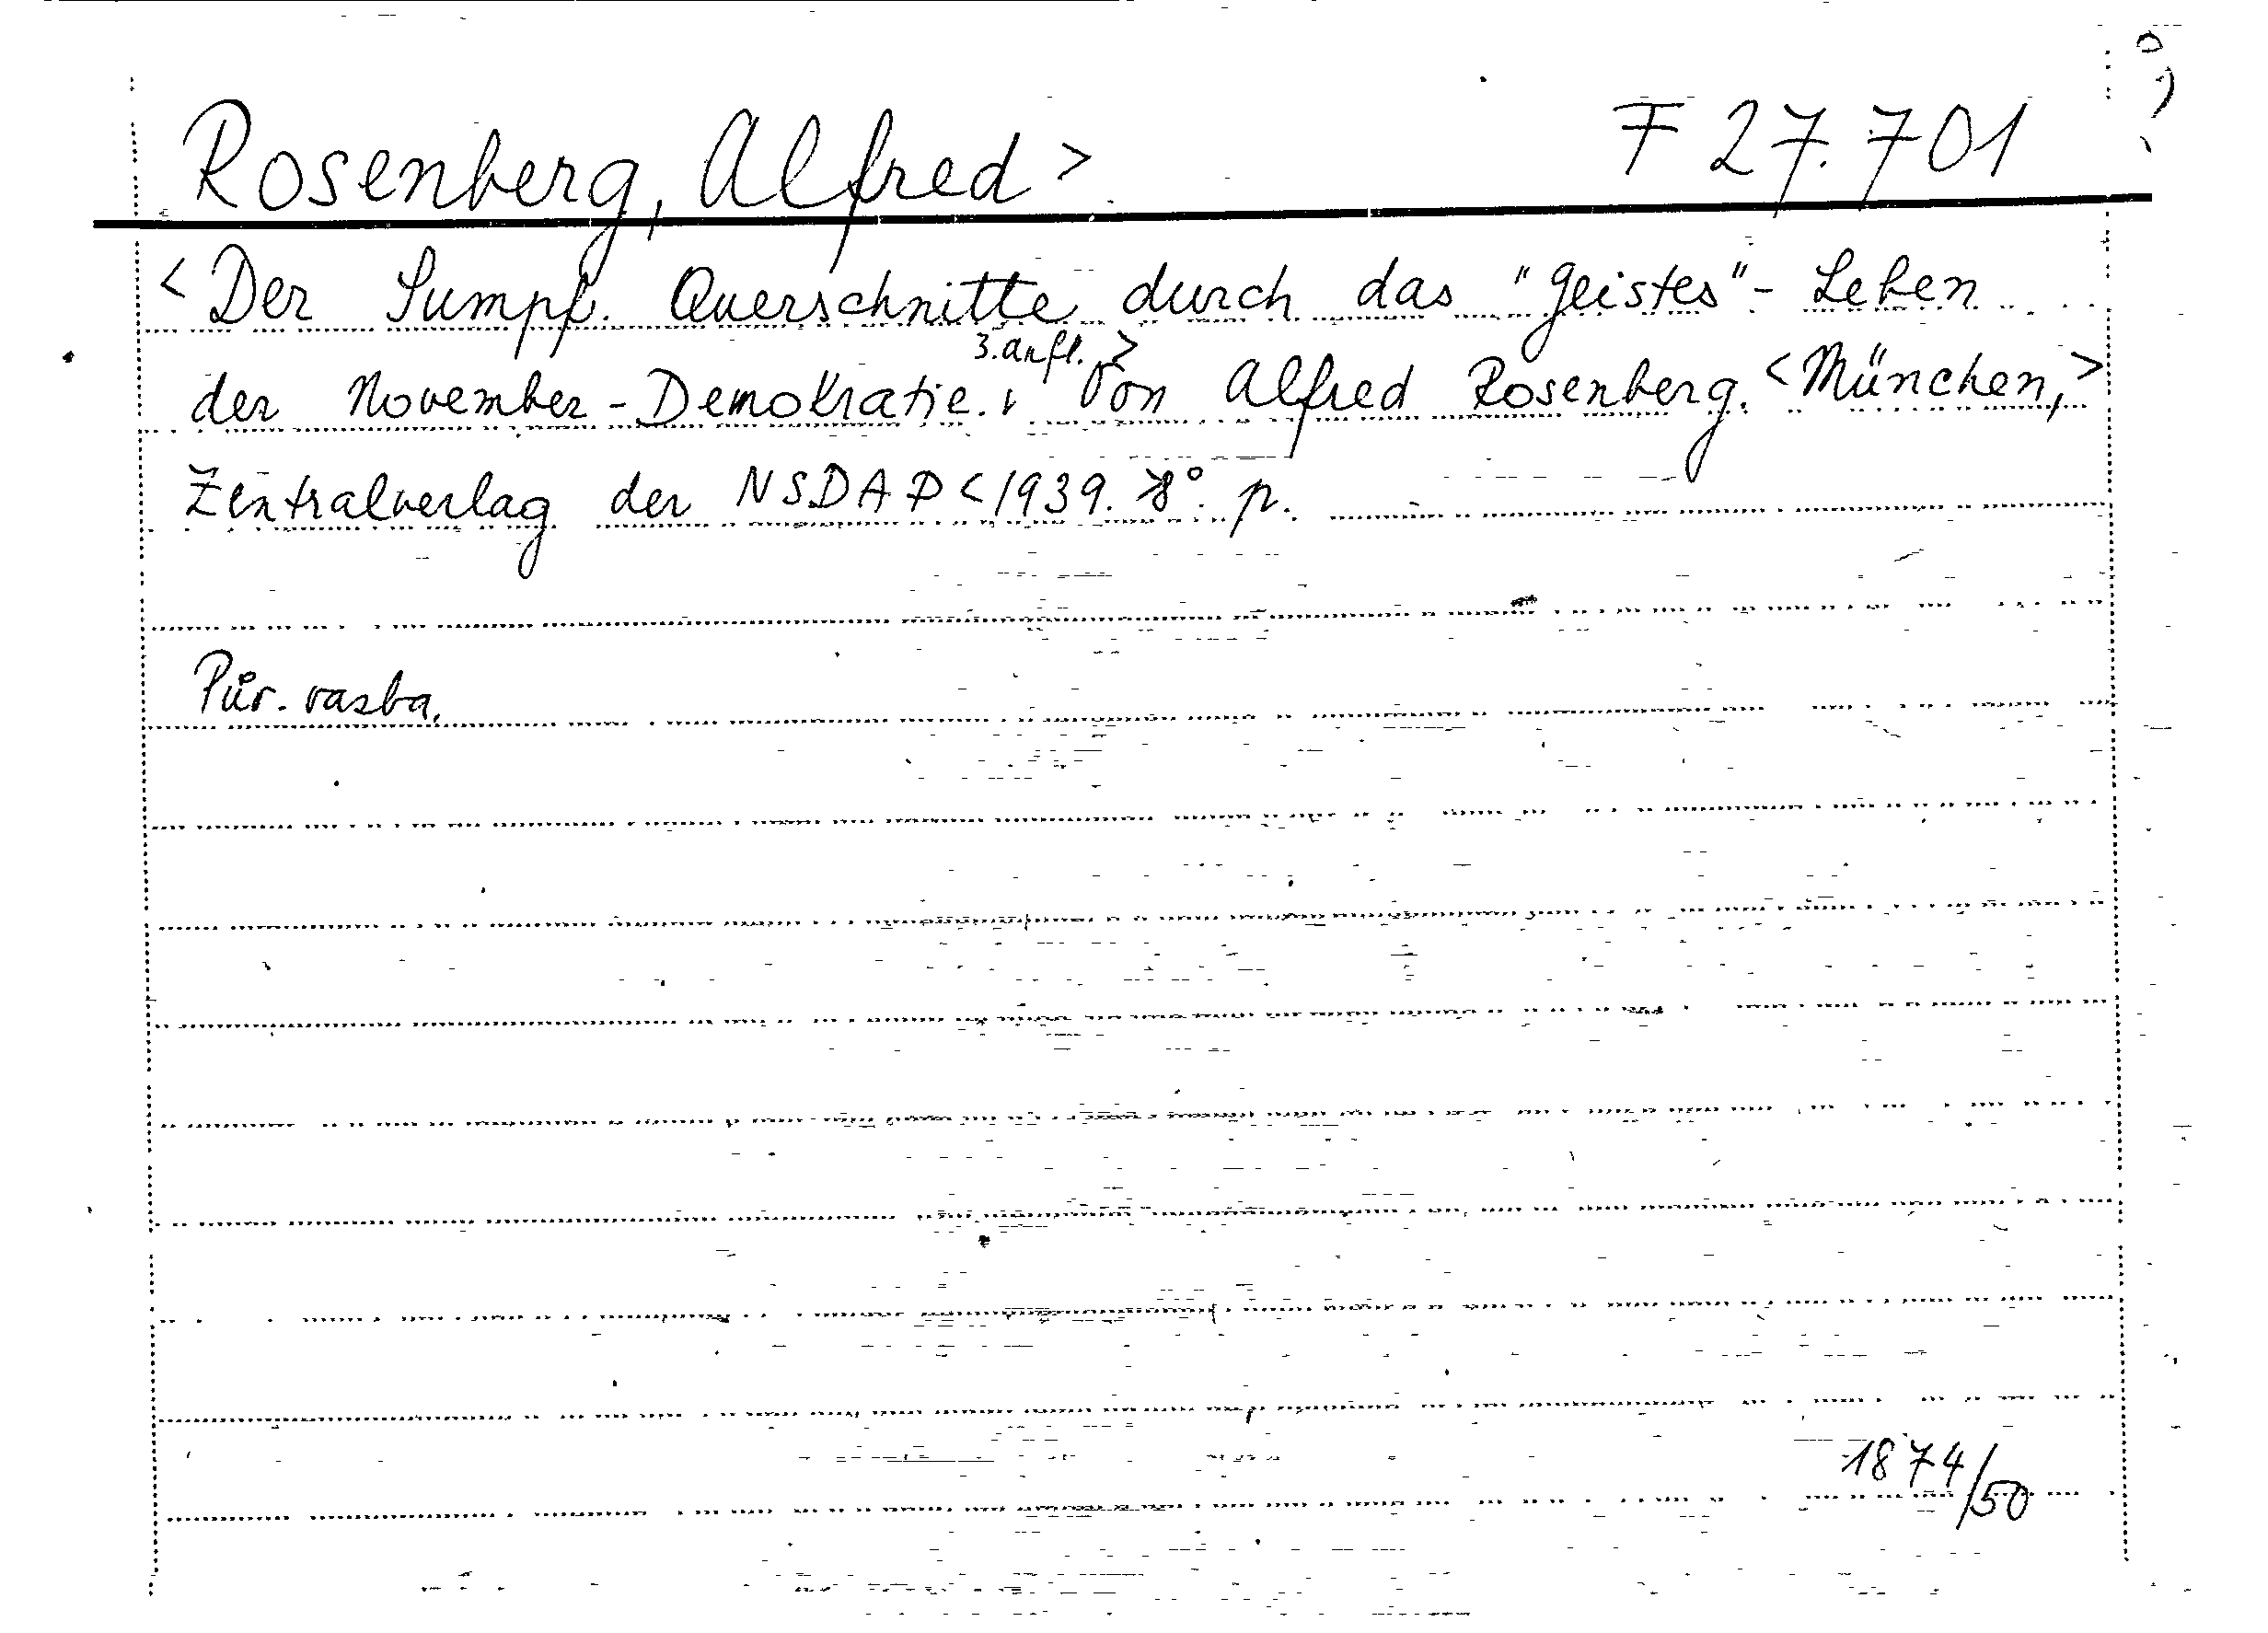 Rosenberg, Alfred > F 27.701
< Der Sumpf. Querschnitte durch das "Geistes"- Leben
3. Aufl. >
der November-Demokratie. Von Alfred Rosenberg. < München, >
Zentralverlag der NSDAP < 1939. 8° p.
Pův. vazba.
1874/50